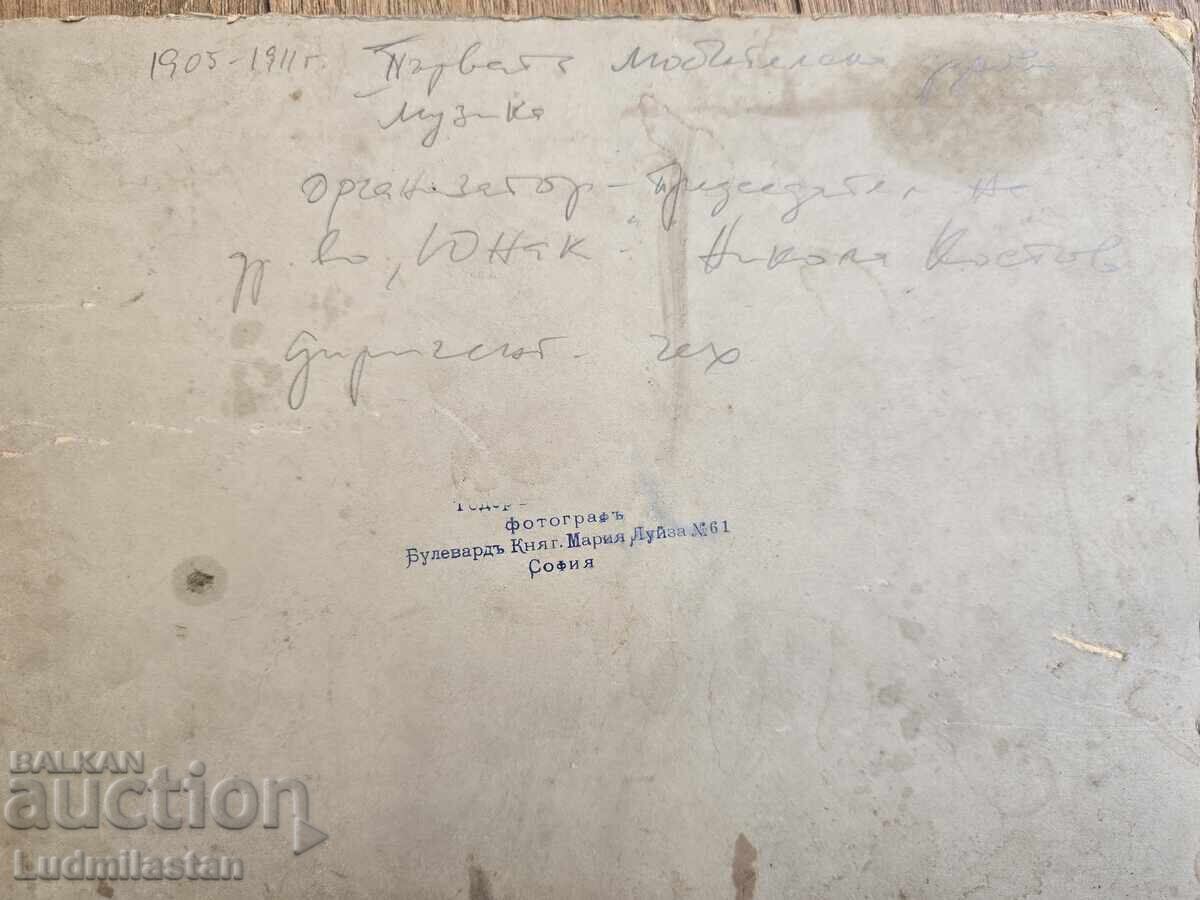 1905-1911 г. Първата любителска духова
музика
Организатор - председател на
д-во „Юнак" Никола Костов
Диригент - чех
Тодор
фотографъ
Булевардъ Княг. Мария Луйза №61
София
BALKAN
auction
Ludmilastan